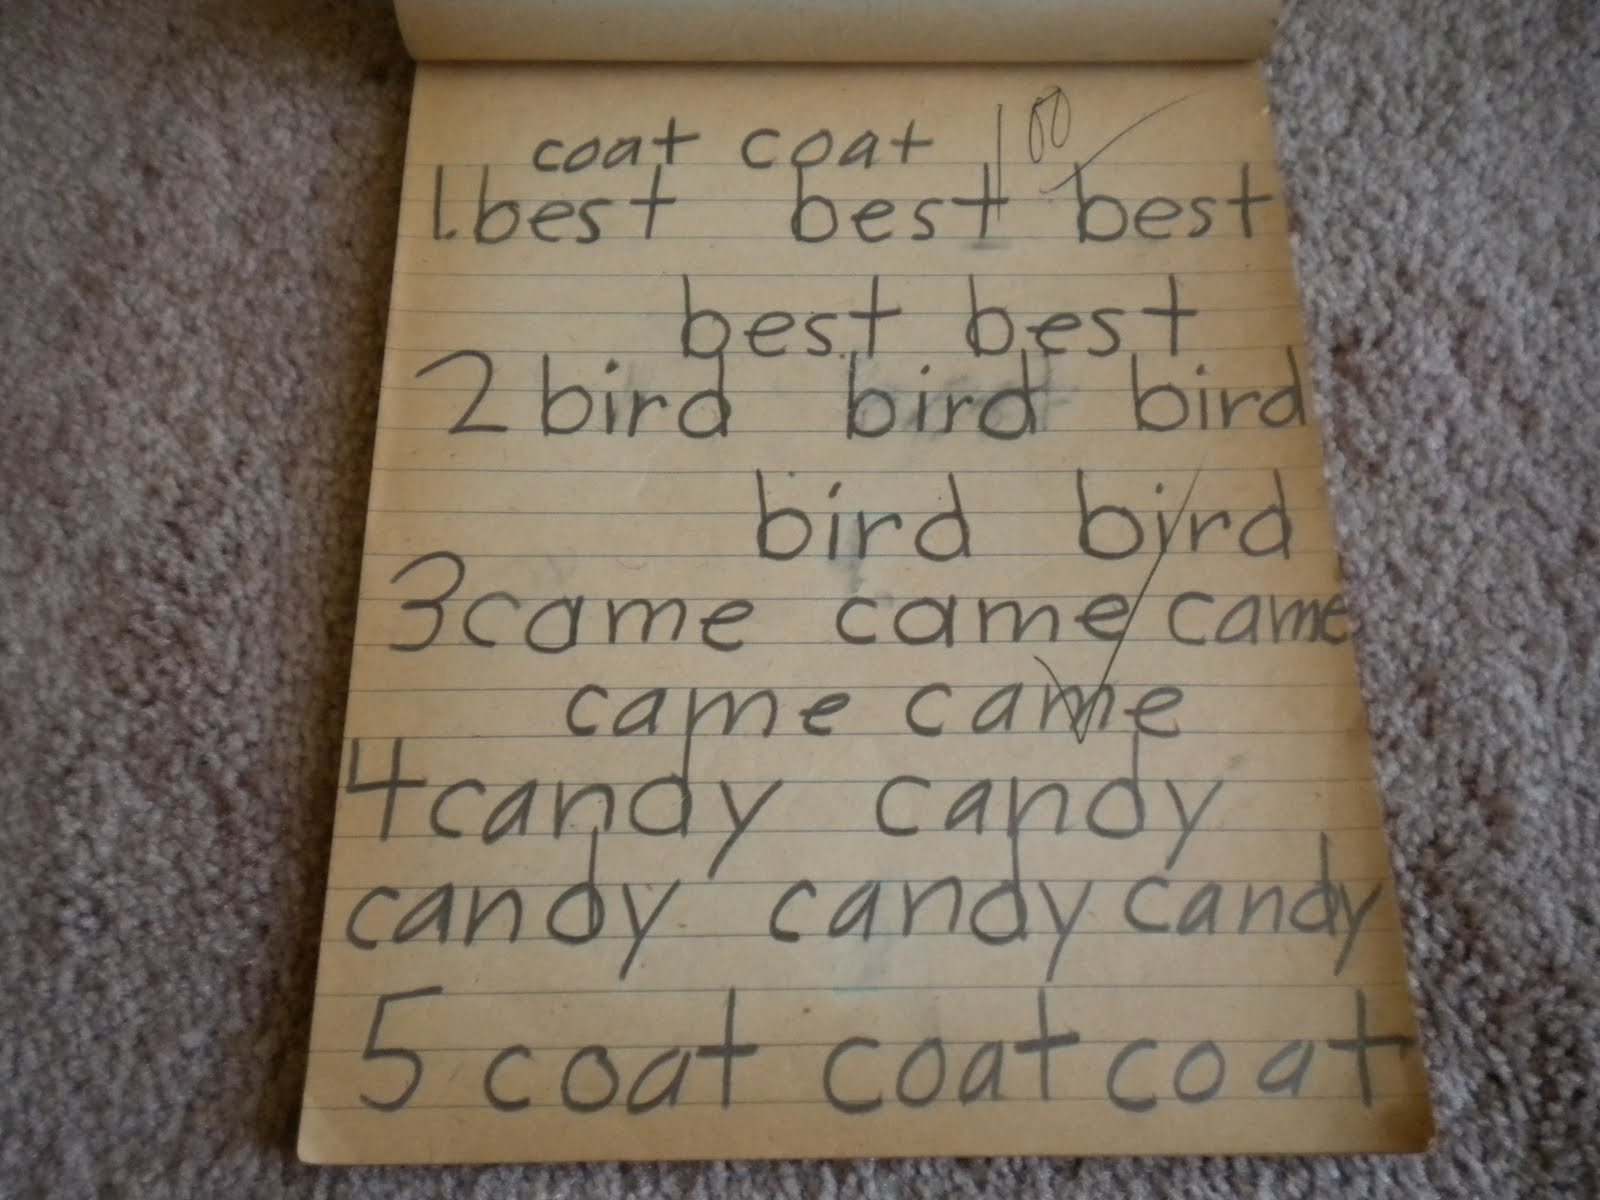 coat coat 100
1. best best best
best best
2 bird bird bird
bird bird
3 came came came
came came
4 candy candy
candy candy candy
5 coat coat coat